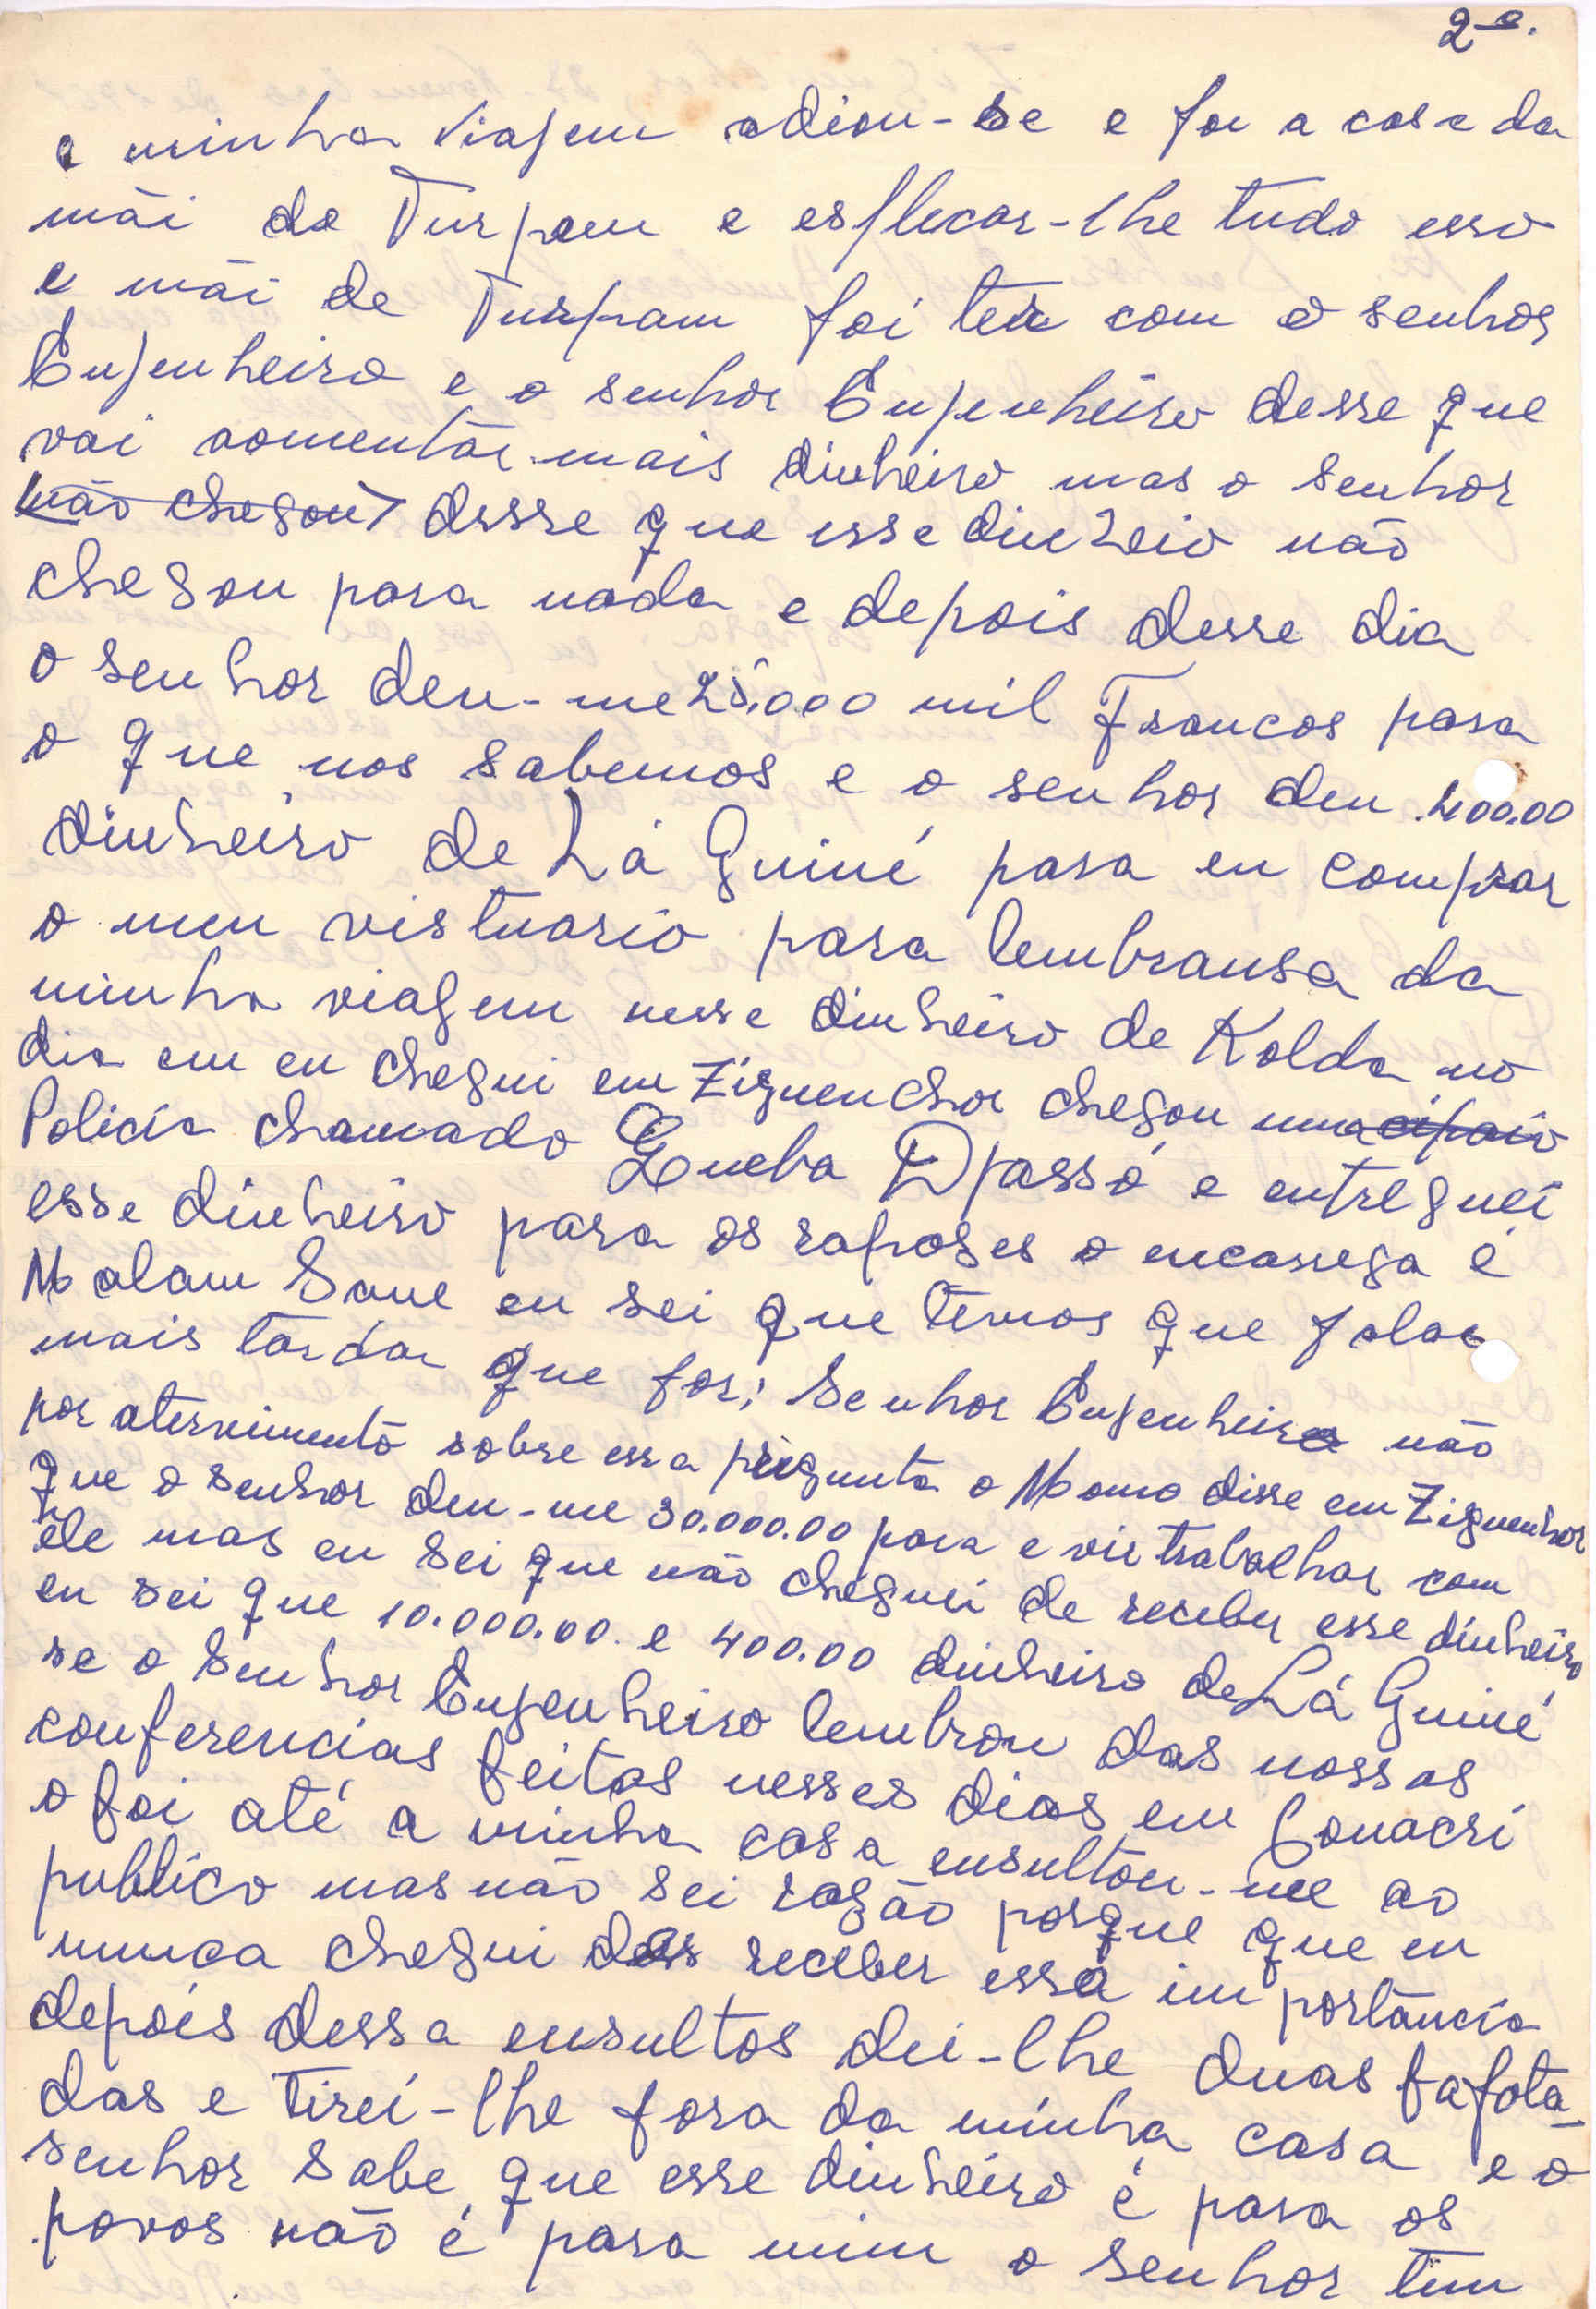 2-a.
a minha viagem adiou-se e foi a casa da
mãi do Turpam e esflecar-lhe tudo esso
e mãi de Turpam foi ter com o senhor
Engenheiro e o senhor Engenheiro desse que
vai aomentar mais dinheiro mas o senhor
não chegou desse que esse dinheio não
chegou para nada e depois desse dia
o senhor deu-me 25.000 mil Francos para
o que nos sabemos e o senhor deu 400.00
dinheiro de Lá Guiné para eu comprar
o meu vistuario para lembransa da
minha viagem nesse dinheiro de Kolda no
dia em eu chegui em Ziguenchor chegou um cipaio
Policia chamado Gueba Djassó e entreguei
esse dinheiro para os raposes o encarrega é
Malam Sane eu sei que temos que falar
mais tardar que for; Senhor Engenheiro não
por atervimento sobre essa prigunta o Momo disse em Ziguenhor
que o senhor deu-me 30.000.00 para e vir trabalhar com
ele mas eu sei que não cheguei de receber esse dinheiro
eu sei que 10.000.00 e 400.00 dinheiro de Lá Guiné
se o Senhor Engenheiro lembrou das nossas
conferencias feitas nesses dias em Conacri
o foi até a minha casa ensultou-me ao
publico mas não sei razão porque que eu
nunca chegui de receber essa importância
depois dessa ensultos dei-lhe duas bafota-
das e tirei-lhe fora da minha casa e o
senhor sabe que esse dinheiro é para os
povos não é para mim o senhor tem